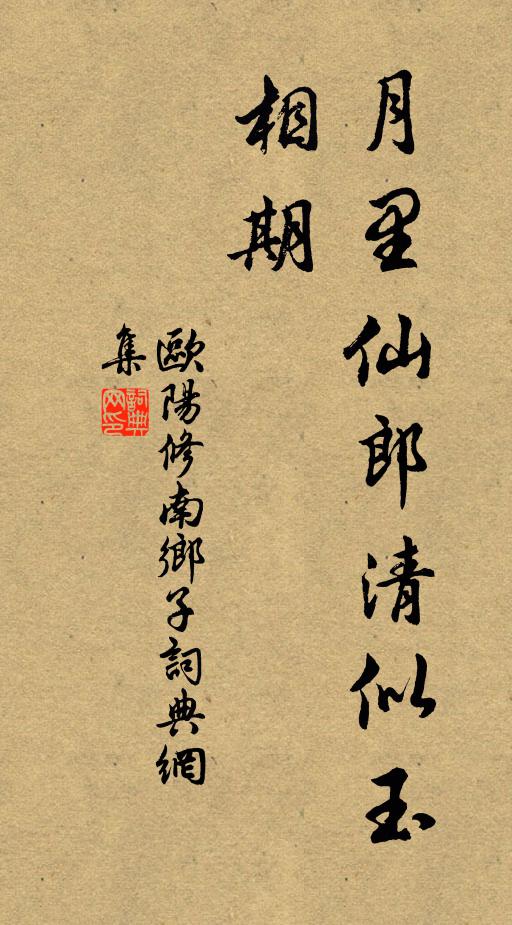 月里仙郎清似玉
相期
歐陽修南鄉子詞典網
集
詞典
网印